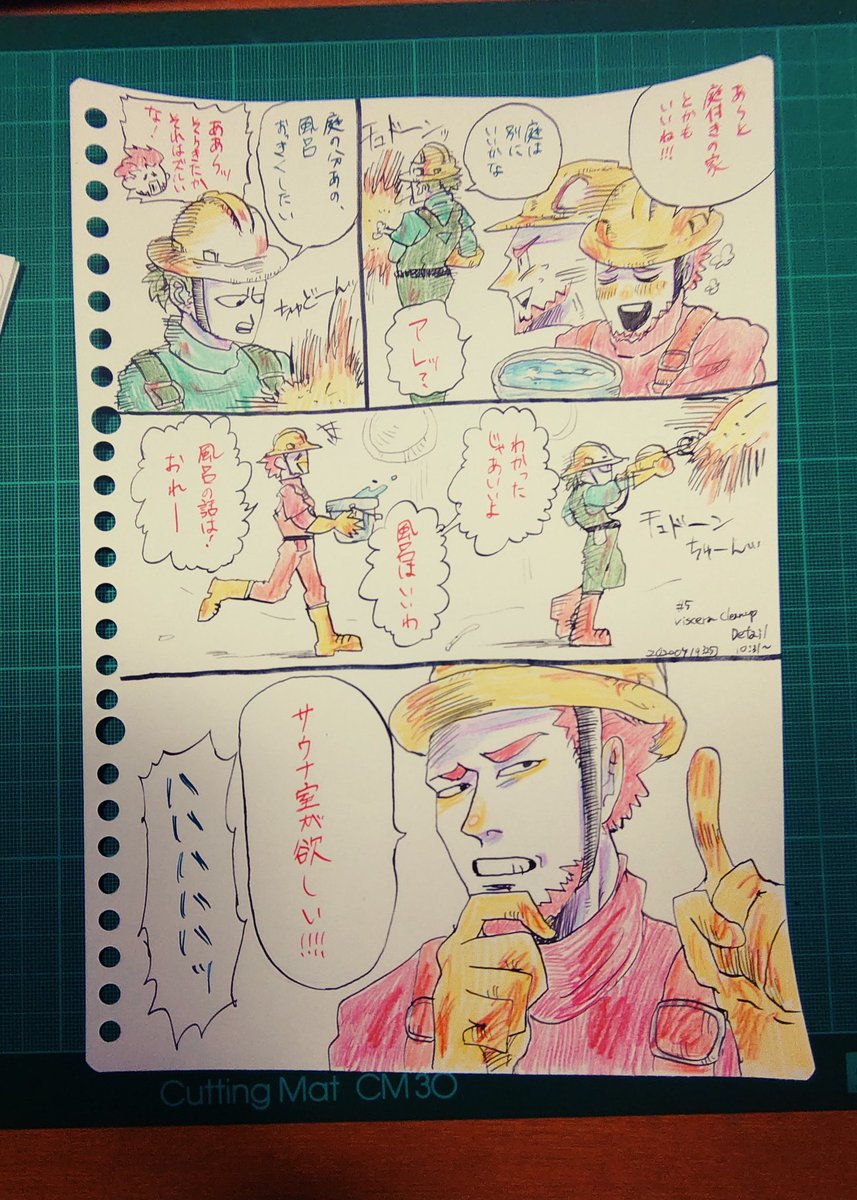 あらと
庭付きの家
とかも
いいね!!!
庭は
別に
いいかな
チュドーンッ
アレッ?
庭の分あの、
風呂
おきくしたい
ああらッ
そうきたか
それはずるい
な!
ちゅどーんッ
わかった
じゃあいいよ
チュドーン
ちゅーんッ
風呂はいいわ
風呂の話は!
おれー
#5
viscera cleanup
Detail
10:31~
サウナ室が欲しい!!!!
ハハハハハハッ
Cutting Mat CM30